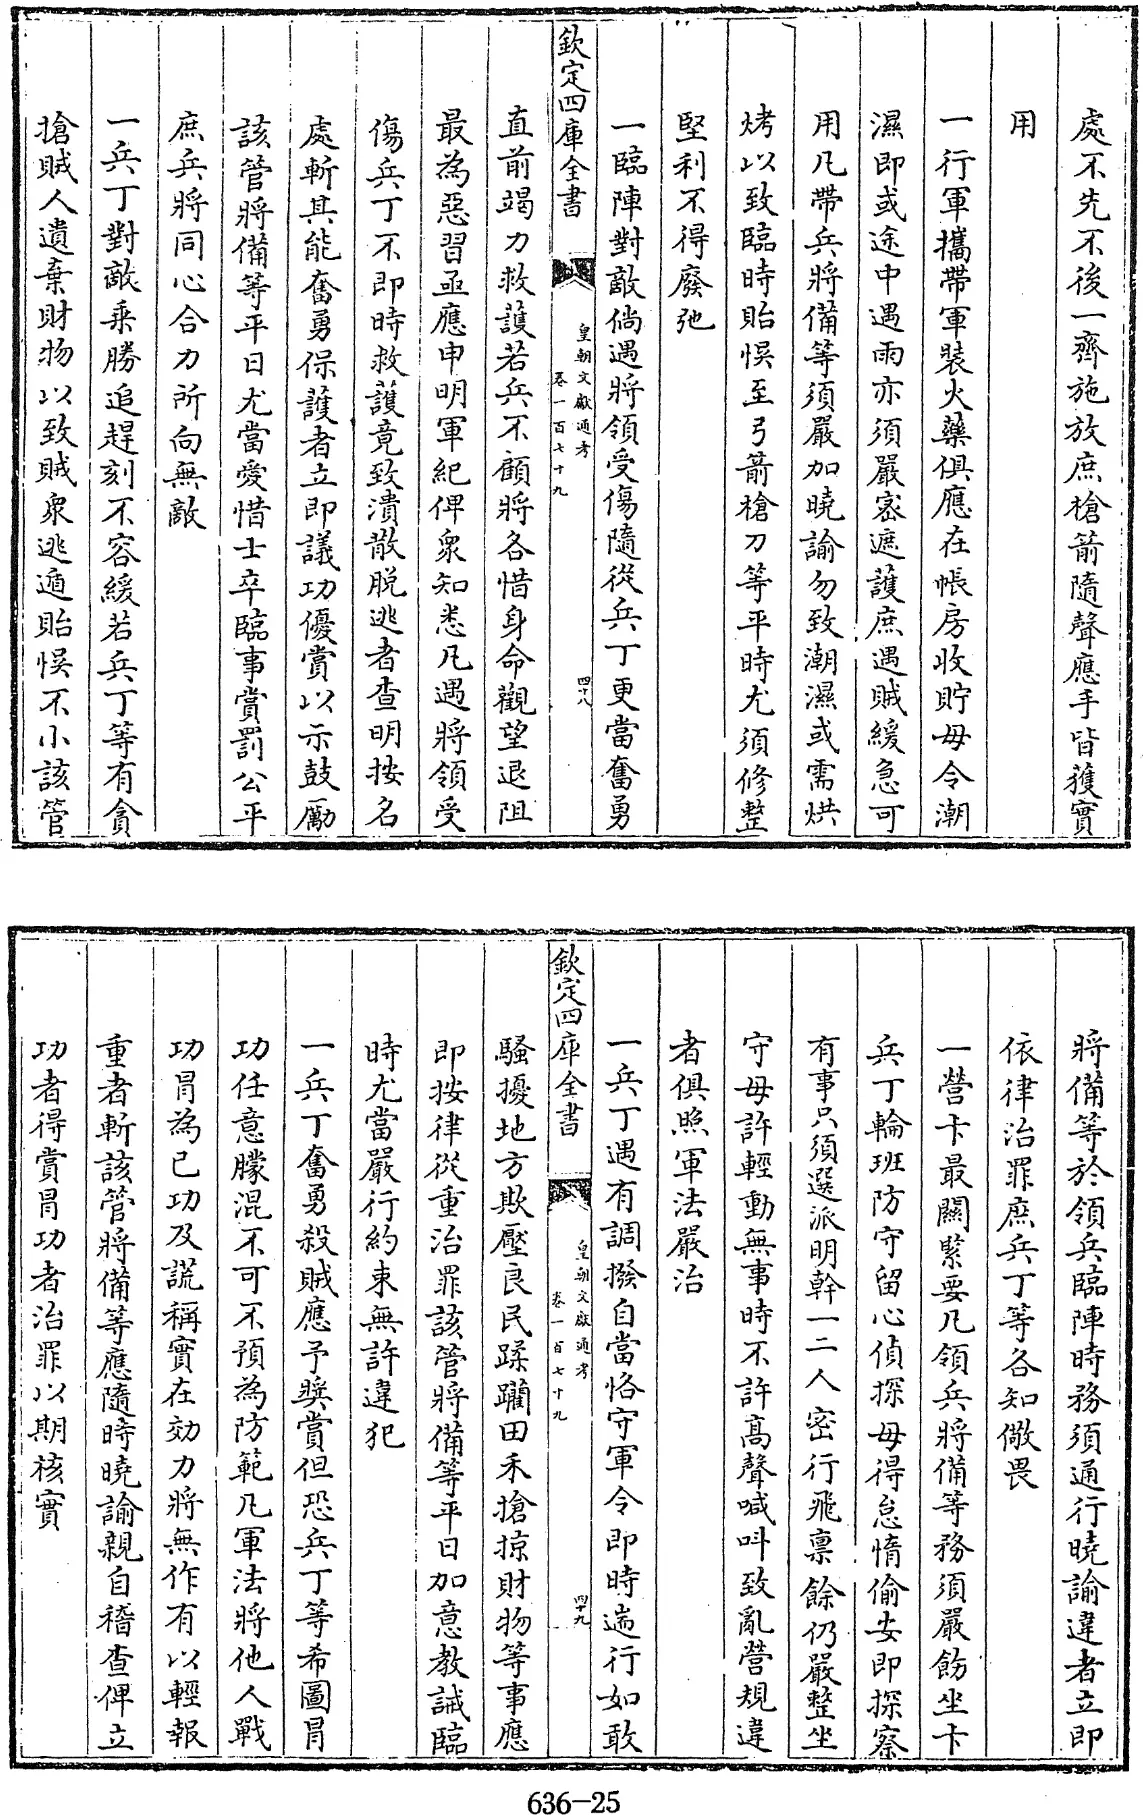 處不先不後一齊施放庶槍箭隨聲應手皆獲實
用
一行軍攜帶軍裝火藥俱應在帳房收貯毋令潮
濕即或途中遇雨亦須嚴密遮護庶遇賊緩急可
用凡帶兵將備等須嚴加曉諭勿致潮濕或需烘
烤以致臨時貽悞至弓箭槍刀等平時尤須修整
堅利不得廢弛
一臨陣對敵倘遇將領受傷隨從兵丁更當奮勇
欽定四庫全書
皇朝文獻通考
卷一百七十九
四十八
直前竭力救護若兵不顧將各惜身命觀望退阻
最為惡習亟應申明軍紀俾衆知悉凡遇將領受
傷兵丁不即時救護竟致潰散脫逃者查明按名
處斬其能奮勇保護者立即議功優賞以示鼓勵
該管將備等平日尤當愛惜士卒臨事賞罰公平
庶兵將同心合力所向無敵
一兵丁對敵乘勝追趕刻不容緩若兵丁等有貪
搶賊人遺棄財物以致賊衆逃遁貽悞不小該管
將備等於領兵臨陣時務須通行曉諭違者立即
依律治罪庶兵丁等各知儆畏
一營卡最關緊要凡領兵將備等務須嚴飭坐卡
兵丁輪班防守留心偵探毋得怠惰偷安即探察
有事只須選派明幹一二人密行飛稟餘仍嚴整坐
守毋許輕動無事時不許髙聲喊叫致亂營規違
者俱照軍法嚴治
一兵丁遇有調撥自當恪守軍令即時遄行如敢
欽定四庫全書
皇朝文獻通考
卷一百七十九
四十九
騷擾地方欺壓良民蹂躪田禾搶掠財物等事應
即按律從重治罪該管將備等平日加意教誡臨
時尤當嚴行約束無許違犯
一兵丁奮勇殺賊應予奬賞但恐兵丁等希圖冒
功任意朦混不可不預為防範凡軍法將他人戰
功冒為己功及謊稱實在効力將無作有以輕報
重者斬該管將備等應隨時曉諭親自稽查俾立
功者得賞冒功者治罪以期核實
636-25